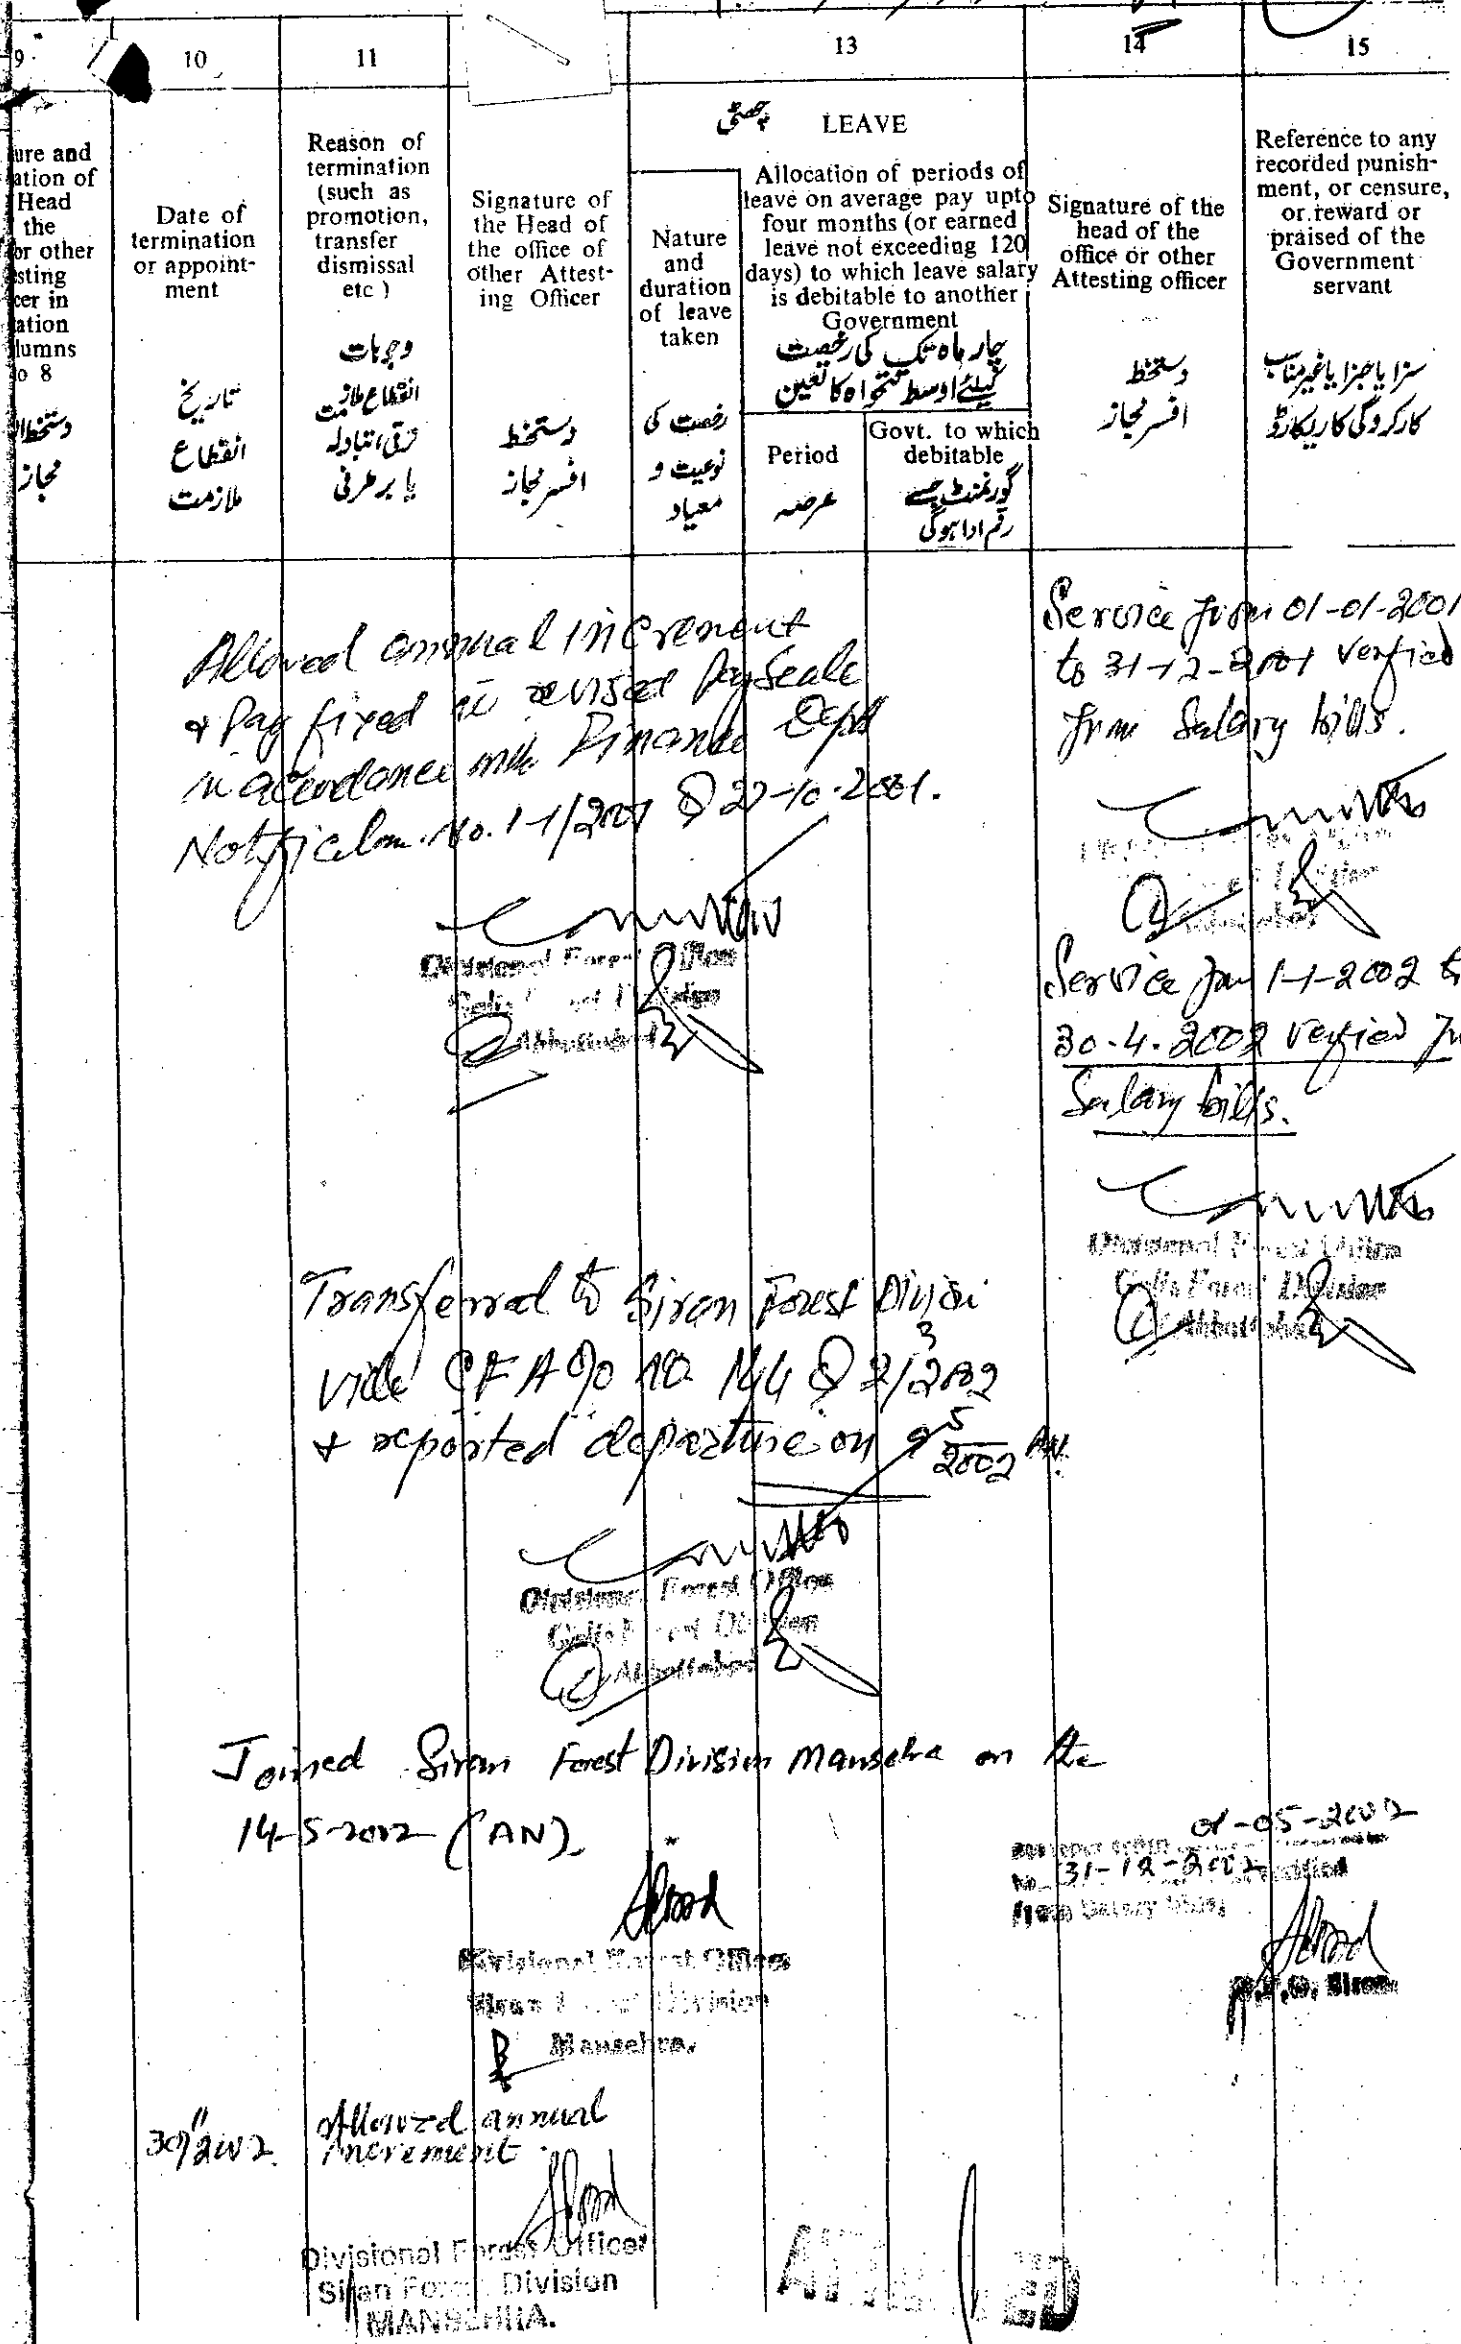 9 10 11 13 14 15
ure and
ation of
Head
the
or other
sting
cer in
ation
lumns
o 8
مجاز
Date of
termination
or appoint-
ment
تاریخ
انقطاع
ملازمت
Reason of
termination
(such as
promotion,
transfer
dismissal
etc )
وجوہات
انقطاع ملازمت
ترقی، تبادلہ
یا برطرفی
Signature of
the Head of
the office of
other Attest-
ing Officer
دستخط
افسر مجاز
چھٹی LEAVE
Nature
and
duration
of leave
taken
رخصت کی
نوعیت و
معیاد
Allocation of periods of
leave on average pay upto
four months (or earned
leave not exceeding 120
days) to which leave salary
is debitable to another
Government
چار ماہ تک کی رخصت
کیلئے اوسط تنخواہ کا تعین
Period
عرصہ
Govt. to which
debitable
گورنمنٹ جسے
رقم ادا ہوگی
Signature of the
head of the
office or other
Attesting officer
دستخط
افسر مجاز
Reference to any
recorded punish-
ment, or censure,
or reward or
praised of the
Government
servant
سزا یا جزا یا غیر مناسب
کارکردگی کا ریکارڈ
Allowed annual increment
& Pay fixed in revised Pay Scale
in accordance with Finance Deptt
Notification No. 1-1/2001 27-10-2001.
Divisional Forest Officer
Galis Forest Division
Abbottabad
Service from 01-01-2001
to 31-12-2001 verfied
from Salary bills.
Service from 1-1-2002 to
30-4-2002 verfied
Salary bills.
Divisional Forest Officer
Galis Forest Division
Abbottabad
Transferred to Siran Forest Division
vide CF A O/O no 144 2/3/2002
& reported departure on 9/5/2002 AN.
Divisional Forest Officer
Galis Forest Division
Abbottabad
Joined Siran Forest Division Mansehra on the
14-5-2002 (AN).
Divisional Forest Officer
Siran Forest Division
Mansehra.
01-05-2002
31-12-2002 verified
from Salary bills
D.F.O. Siran
30/11/2002 Allowed annual
increment
Divisional Forest Officer
Siran Forest Division
MANSEHRA.
ATTESTED